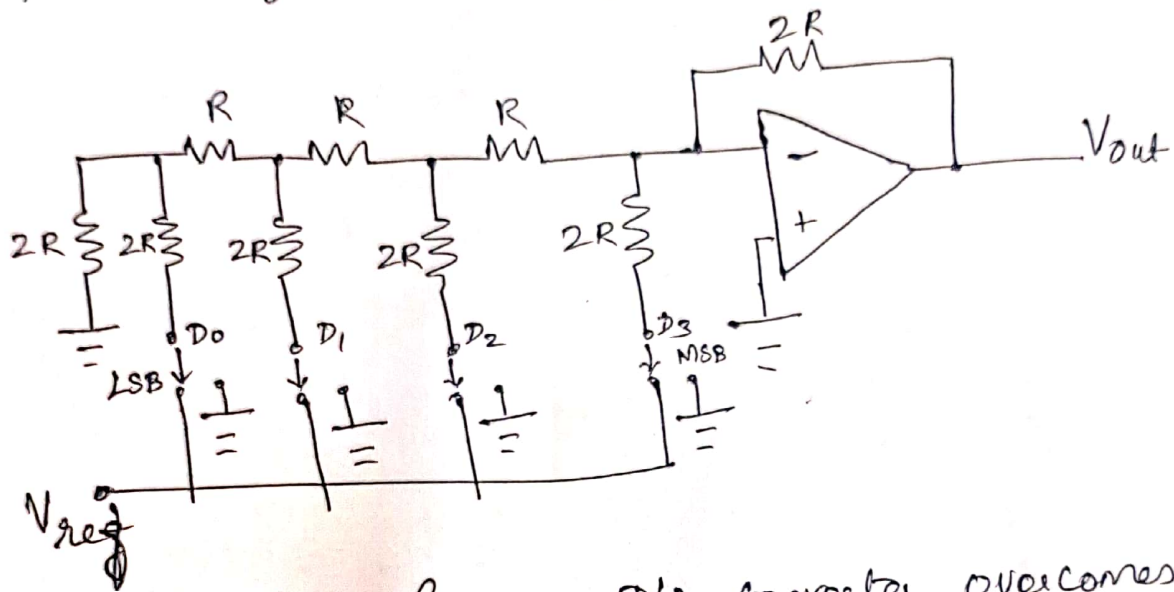 2R
R R R
Vout
-
+
2R 2R 2R 2R 2R
D0 D1 D2 D3
LSB MSB
Vref
D/A converter overcomes